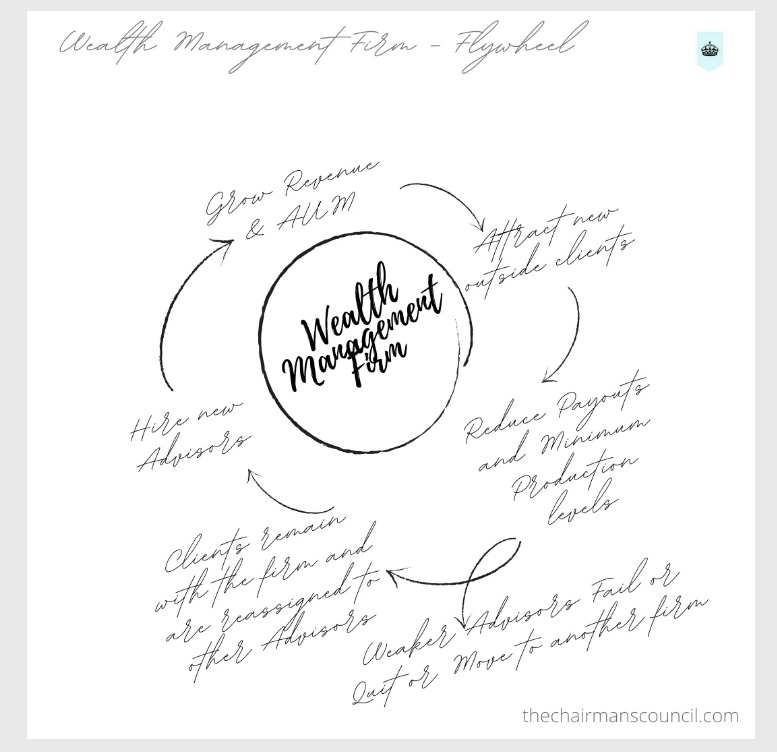 Wealth Management Firm - Flywheel
Grow Revenue
& AUM
Attract new
outside clients
Wealth
Management
Firm
Reduce Payouts
and Minimum
Production
levels
Hire new
Advisors
Clients remain
with the firm and
are reassigned to
other Advisors
Weaker Advisors Fail or
Quit or Move to another firm
thechairmanscouncil.com